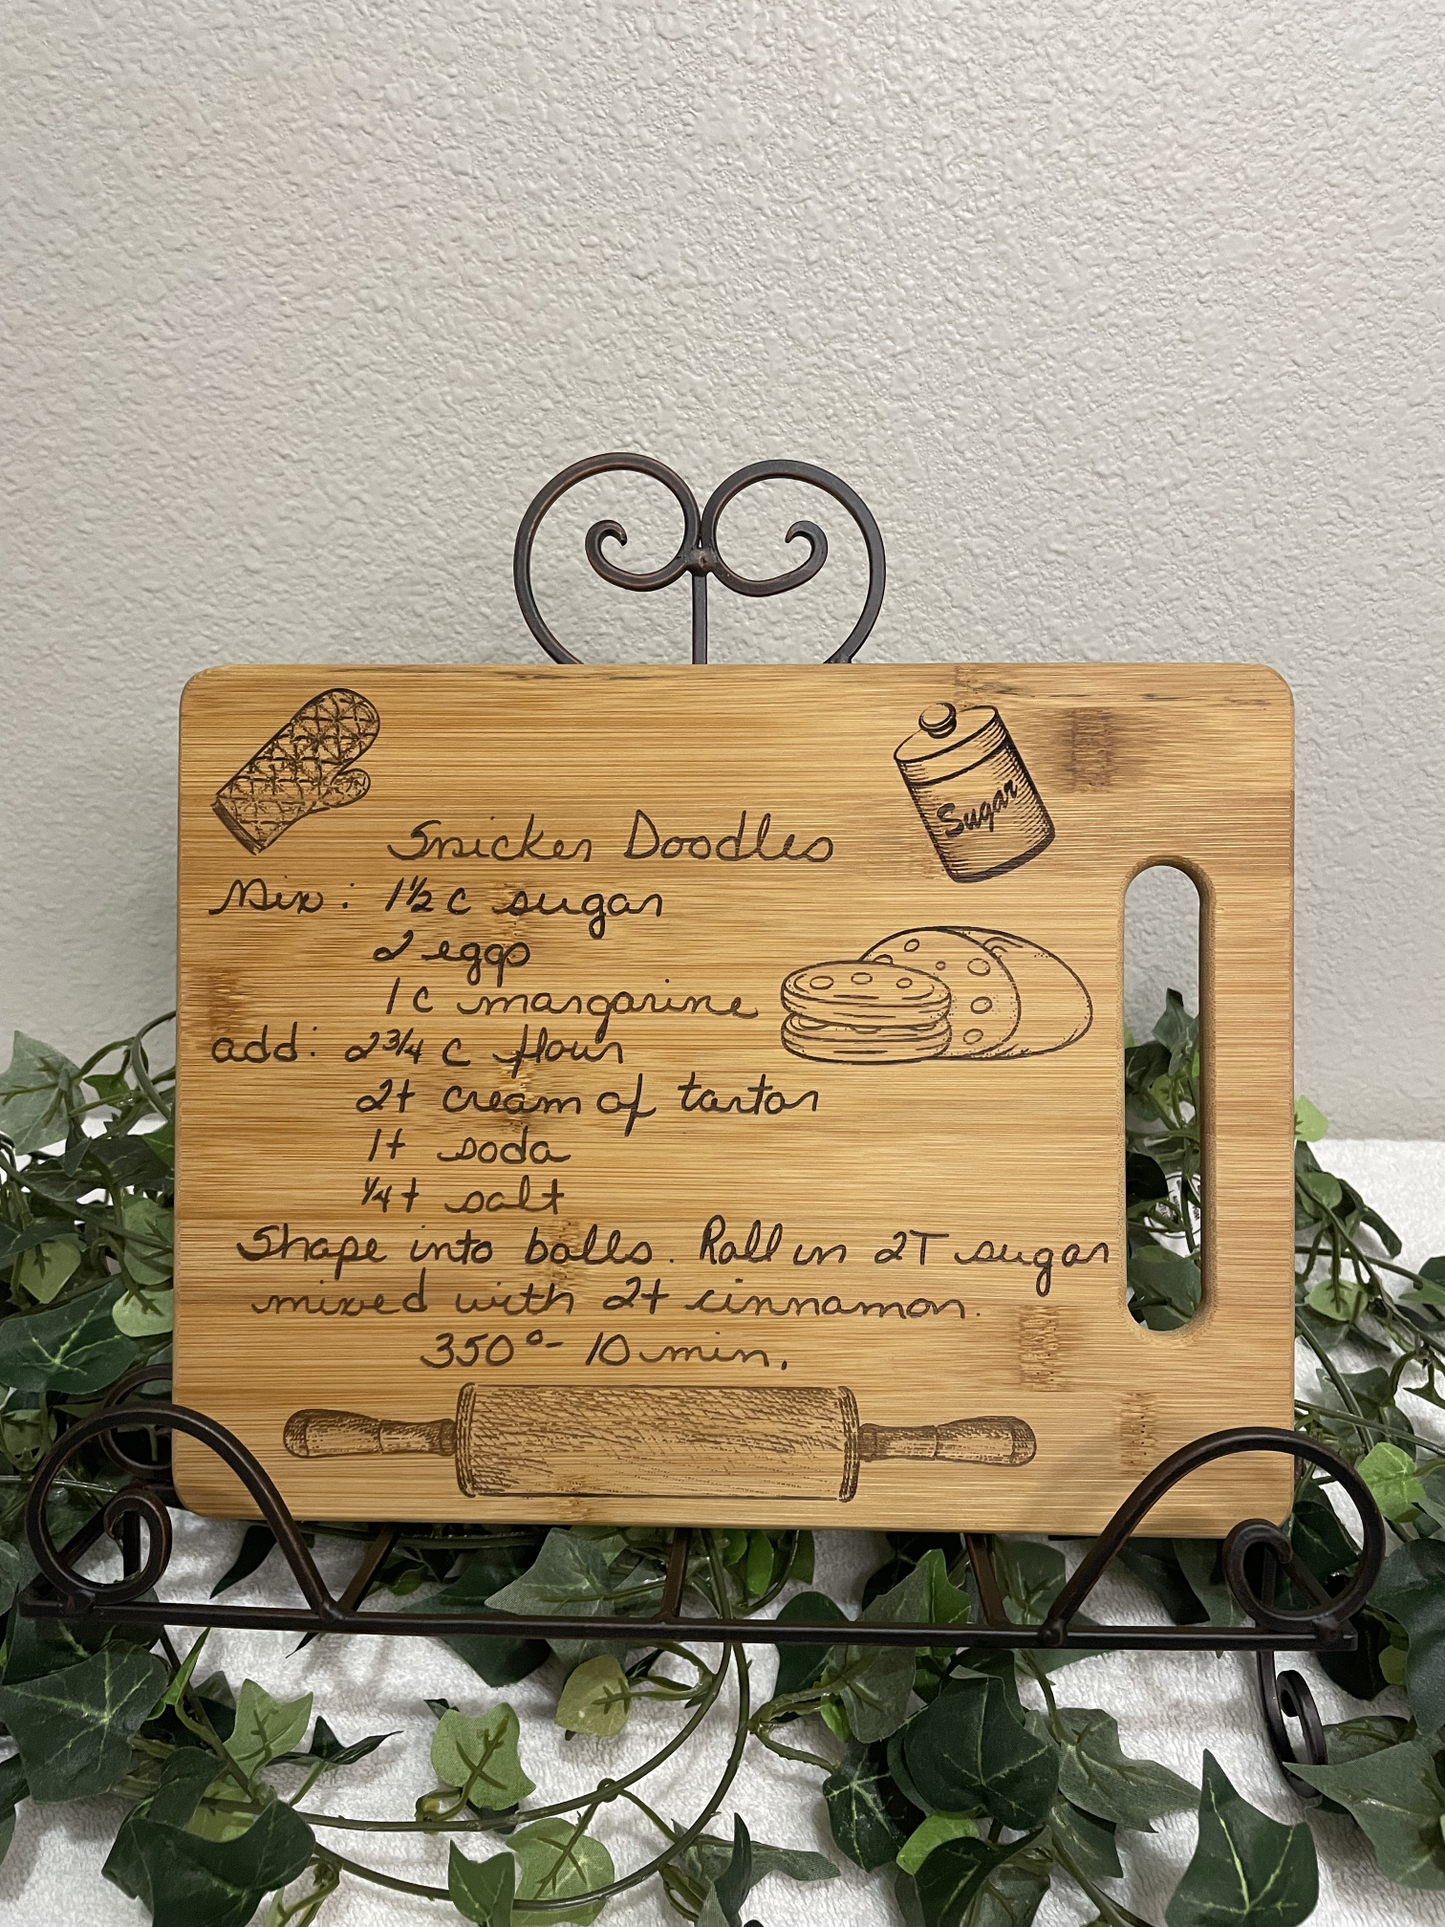 Sugar
Snicker Doodles
Mix: 1 1/2 c sugar
2 eggs
1 c margarine
add: 2 3/4 c flour
2t cream of tartar
1t soda
1/4 t salt
Shape into balls. Roll in 2T sugar
mixed with 2t cinnamon.
350° - 10 min.